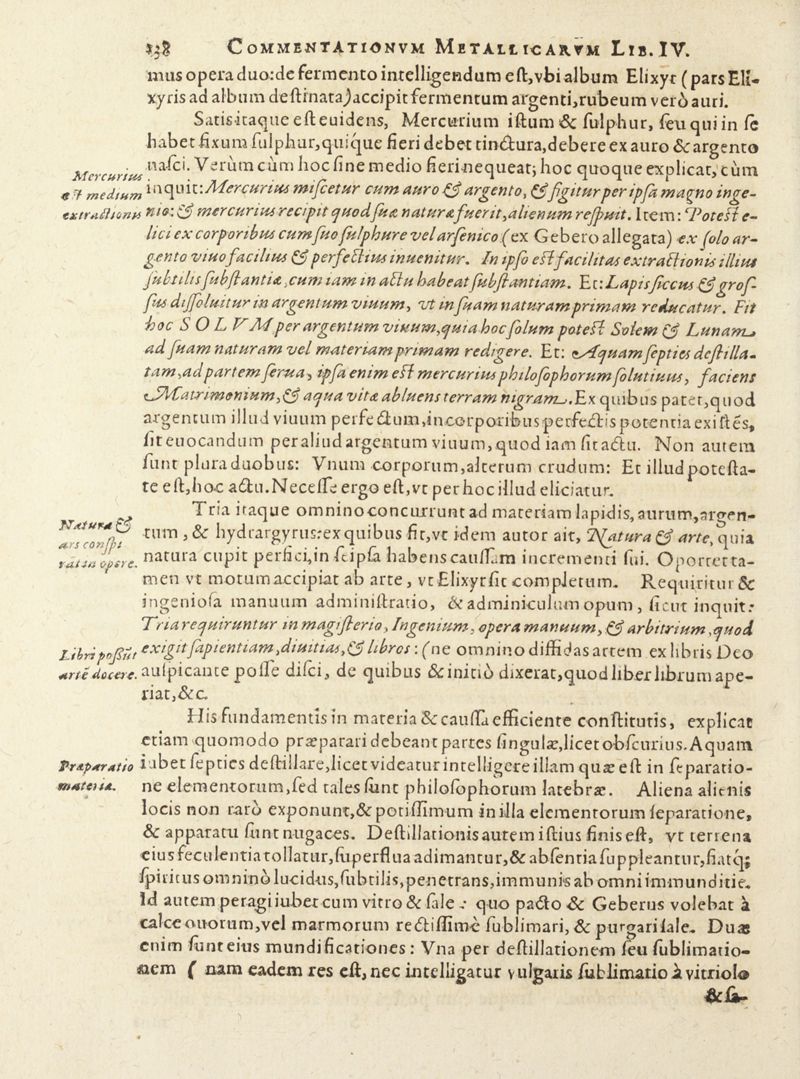 338 COMMENTATIONVM METALLICARVM LIB. IV.
mus opera duo: de fermento intelligendum est, vbi album Elixyr (pars Eli-
xyris ad album destinata) accipit fermentum argenti, rubeum verò auri.
Satis itaque est euidens, Mercurium istum & sulphur, seu qui in se
habet fixum sulphur, quique fieri debet tinctura, debere ex auro & argento
Mercurius
nasci. Verùm cùm hoc sine medio fieri nequeat; hoc quoque explicat, cùm
est medium
inquit: Mercurius miscetur cum auro & argento, & figitur per ipsa magno inge-
extractionis
nio: & mercurius recipit quod suæ naturæ fuerit, alienum respuit. Item: Potest e-
lici ex corporibus cum suo sulphure vel arsenico (ex Gebero allegata) ex solo ar-
gento viuo facilius & perfectius inuenitur. In ipso est facilitas extractionis illius
subtilis substantiæ, cum iam in actu habeat substantiam. Et: Lapis siccus & gros-
sus dissoluitur in argentum viuum, vt in suam naturam primam reducatur. Fit
hoc SOLVM per argentum viuum, quia hoc solum potest Solem & Lunam
ad suam naturam vel materiam primam redigere. Et: Aquam septies destilla-
tam, ad partem serua, ipsa enim est mercurius philosophorum solutiuus, faciens
Matrimonium, & aqua vitæ abluens terram nigram. Ex quibus patet, quod
argentum illud viuum perfectum, in corporibus perfectis potentia existẽs,
sit euocandum per aliud argentum viuum, quod iam sit actu. Non autem
sunt plura duobus: Vnum corporum, alterum crudum: Et illud potesta-
te est, hoc actu. Necesse ergo est, vt per hoc illud eliciatur.
Tria itaque omnino concurrunt ad materiam lapidis, aurum, argen-
Natura &
tum, & hydrargyrus: ex quibus fit, vt idem autor ait, Natura & arte, quia
ars conspi
rat in opere.
natura cupit perfici, in seipsa habens caussam incrementi sui. Oportet ta-
men vt motum accipiat ab arte, vt Elixyr sit completum. Requiritur &
ingeniosa manuum administratio, & adminiculum opum, sicut inquit:
Tria requiruntur in magisterio, Ingenium, opera manuum, & arbitrium, quod
Libri possũt
exigit sapientiam, diuitias, & libros: (ne omnino diffidas artem ex libris Deo
artẽ docere.
auspicante posse disci, de quibus & initiò dixerat, quod liber librum ape-
riat, &c.
His fundamentis in materia & caussa efficiente constitutis, explicat
etiam quomodo præparari debeant partes singulæ, licet obscurius. Aquam
Præparatio
iubet septies destillare, licet videatur intelligere illam quæ est in separatio-
materiæ.
ne elementorum, sed tales sunt philosophorum latebræ. Aliena alienis
locis non raro exponunt, & potissimum in illa elementorum separatione,
& apparatu sunt nugaces. Destillationis autem istius finis est, vt terrena
eius feculentia tollatur, superflua adimantur, & absentia suppleantur, fiatq;
spiritus omninò lucidus, subtilis, penetrans, immunis ab omni immunditie.
Id autem peragi iubet cum vitro & sale: quo pacto & Geberus volebat à
calce ouorum, vel marmorum rectissimè sublimari, & purgari sale. Duæ
enim sunt eius mundificationes: Vna per destillationem seu sublimatio-
nem ( nam eadem res est, nec intelligatur vulgaris sublimatio à vitriolo
& sa-